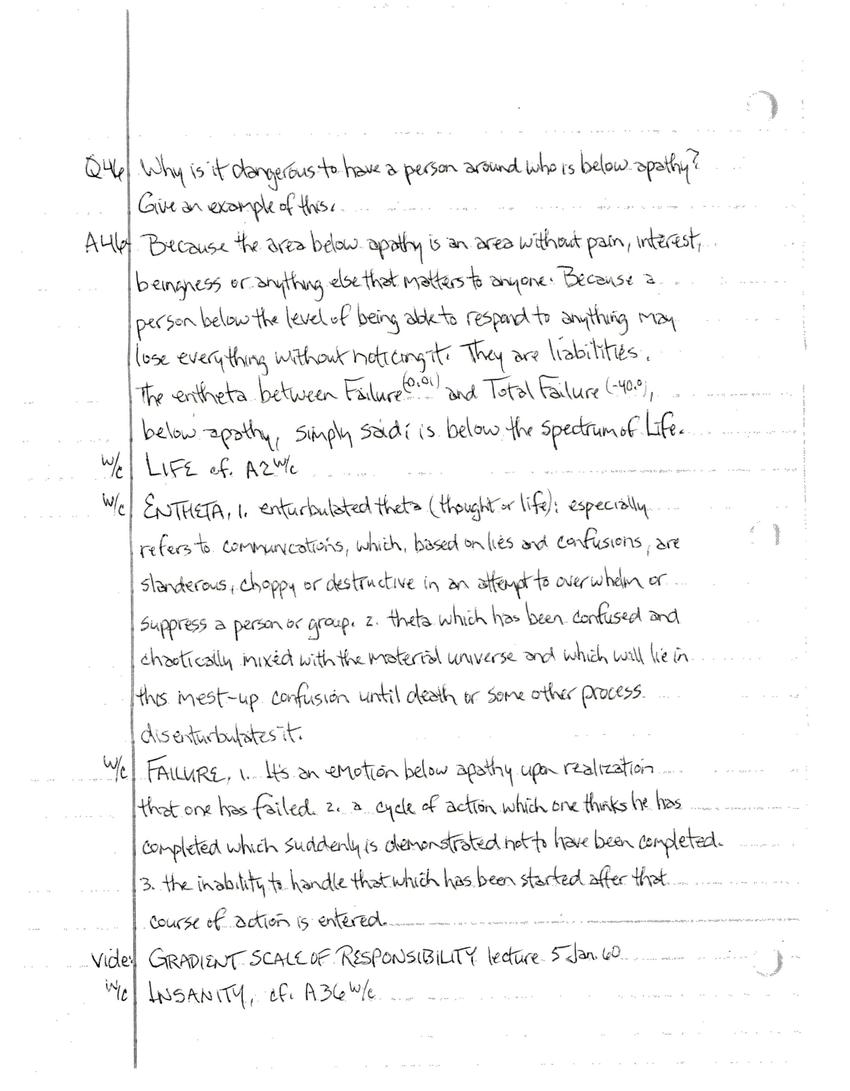 Q46 Why is it dangerous to have a person around who is below apathy?
Give an example of this.
A46 Because the area below apathy is an area without pain, interest,
beingness or anything else that matters to anyone. Because a
person below the level of being able to respond to anything may
lose everything without noticing it. They are liabilities.
The entheta between Failure (0.01) and Total Failure (-40.0),
below apathy, simply said: is below the spectrum of Life.
w/c LIFE cf. A2 w/c
w/c ENTHETA, 1. enturbulated theta (thought or life): especially
refers to communcations, which, based on lies and confusions, are
slanderous, choppy or destructive in an attempt to overwhelm or
suppress a person or group. 2. theta which has been confused and
chaotically mixed with the material universe and which will lie in
this mest-up confusion until death or some other process
disenturbulates it.
w/c FAILURE, 1. It's an emotion below apathy upon realization
that one has failed. 2. a cycle of action which one thinks he has
completed which suddenly is demonstrated not to have been completed.
3. the inability to handle that which has been started after that
course of action is entered.
vide: GRADIENT SCALE OF RESPONSIBILITY lecture 5 Jan. 60
w/c INSANITY, cf. A36 w/c